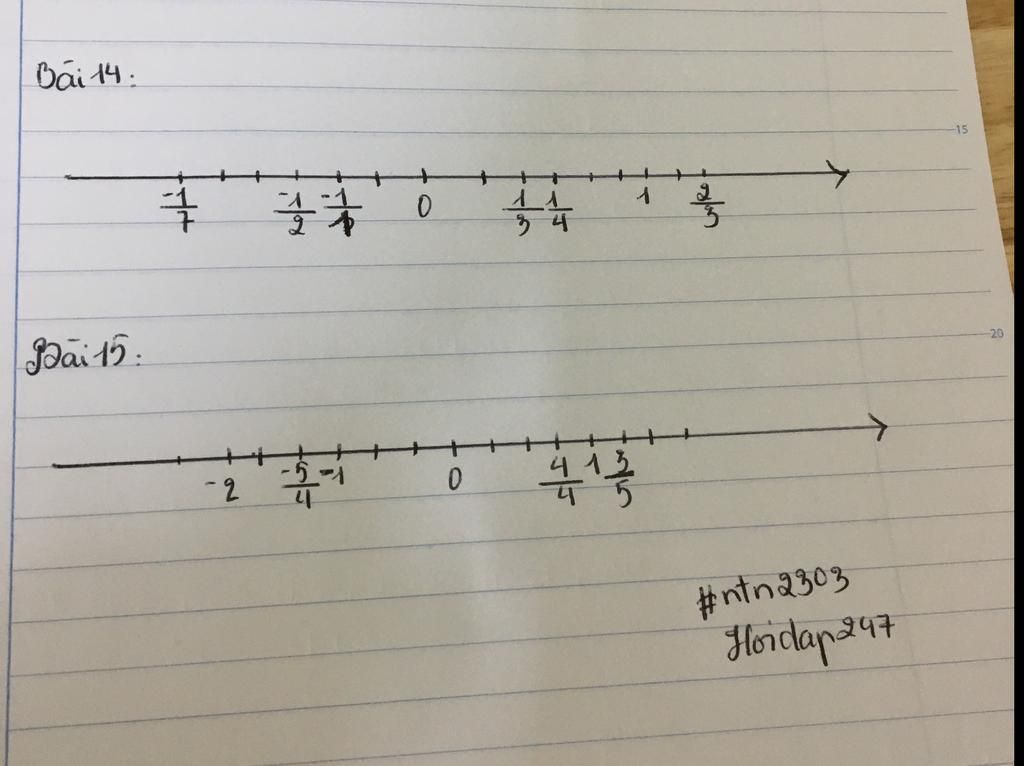 Bài 14:
15
-1/7 -1/2 -1/1 0 1/3 1/4 1 2/3
20
Bài 15:
-2 -5/4 -1 0 4/4 1 3/5
#ntn2303
Hoidap247